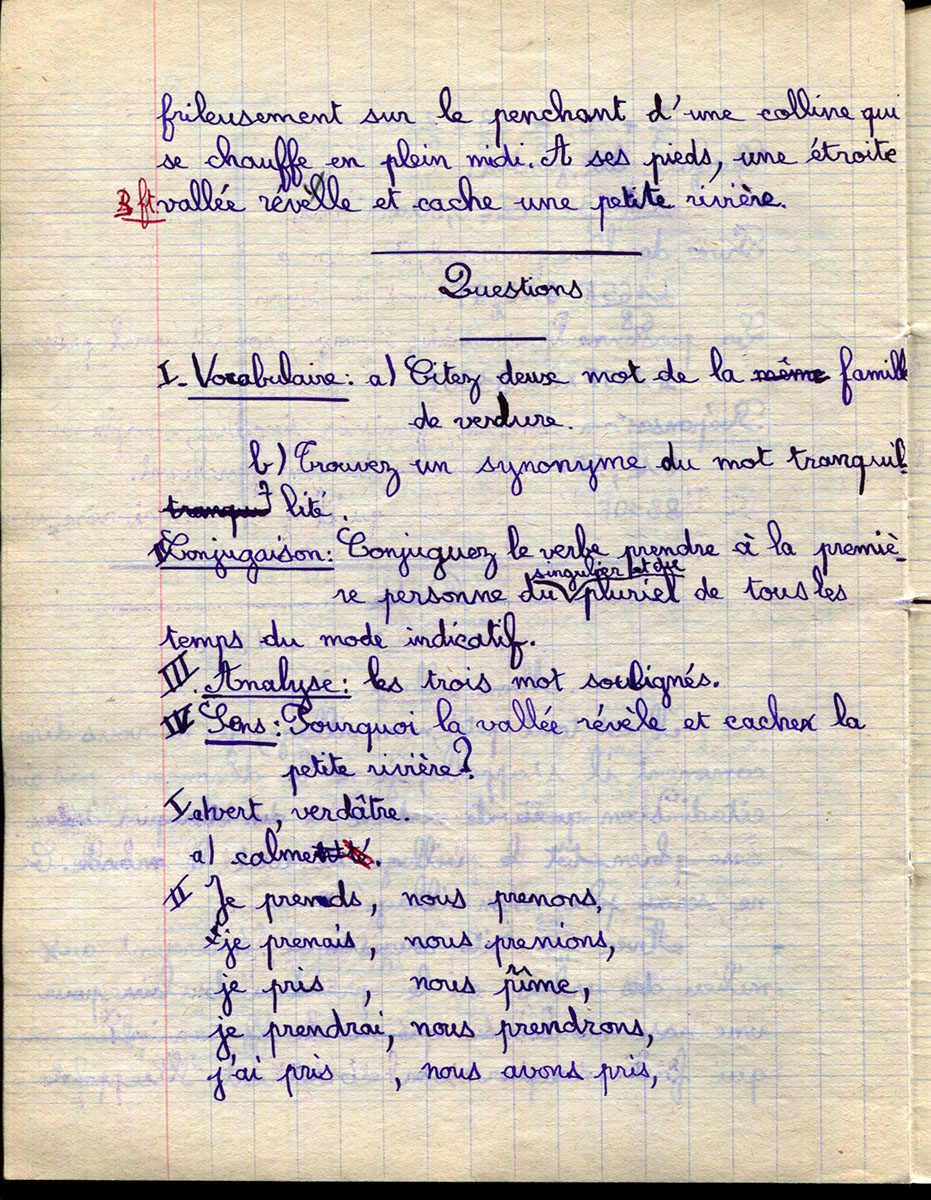 frileusement sur le penchant d'une colline qui
se chauffe en plein midi. A ses pieds, une étroite
3 ft vallée révèlle et cache une petite rivière.
Questions
I. Vocabulaire: a) Citez deux mot de la même famill
de verdure.
b) Trouvez un synonyme du mot tranquil-
lité.
II Conjugaison: Conjuguez le verbe prendre à la premiè-
singulier et du
re personne du pluriel de tous les
temps du mode indicatif.
III. Analyse: les trois mot soulignés.
IV Sens: Pourquoi la vallée révèle et cache la
petite rivière?
vert, verdâtre.
a) calme.
II Je prends, nous prenons,
je prenais, nous prenions,
je pris, nous pîme,
je prendrai, nous prendrons,
j'ai pris, nous avons pris,